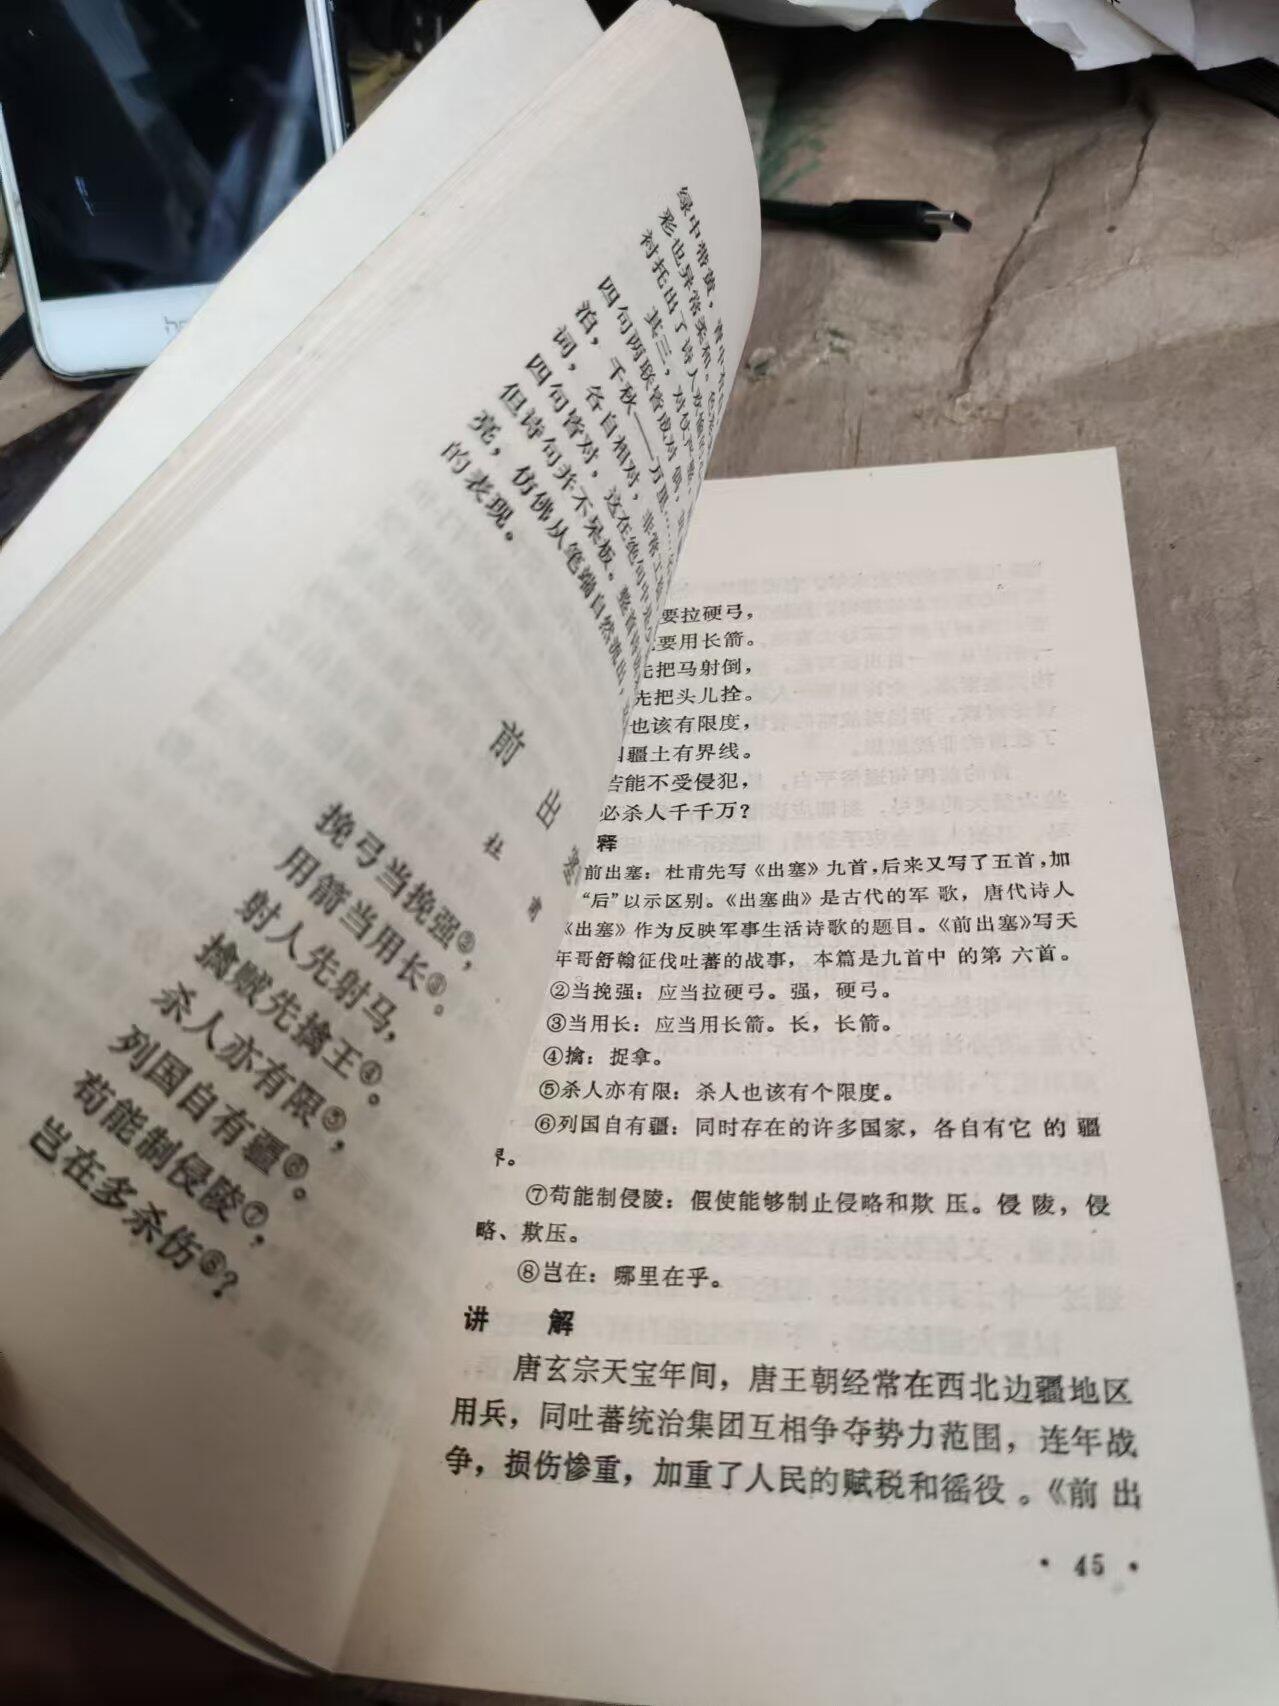 绿中带黄，
彩也异常柔和，
衬托出了诗人
其三，对仗
四句两联皆成对
泊，千秋——万里……
词，各自相对，非常工
四句皆对，这在绝句中
但诗句并不呆板。整首
亮，仿佛从笔端自然流出，
的表现。
前出塞
杜甫
挽弓当挽强②，
用箭当用长③。
射人先射马，
擒贼先擒王④。
杀人亦有限⑤，
列国自有疆⑥。
苟能制侵陵⑦，
岂在多杀伤⑧？
要拉硬弓，
要用长箭。
先把马射倒，
先把头儿拴。
也该有限度，
疆土有界线。
若能不受侵犯，
必杀人千千万？
释
前出塞：杜甫先写《出塞》九首，后来又写了五首，加
“后”以示区别。《出塞曲》是古代的军歌，唐代诗人
《出塞》作为反映军事生活诗歌的题目。《前出塞》写天
年哥舒翰征伐吐蕃的战事，本篇是九首中的第六首。
②当挽强：应当拉硬弓。强，硬弓。
③当用长：应当用长箭。长，长箭。
④擒：捉拿。
⑤杀人亦有限：杀人也该有个限度。
⑥列国自有疆：同时存在的许多国家，各自有它的疆
界。
⑦苟能制侵陵：假使能够制止侵略和欺压。侵陵，侵
略、欺压。
⑧岂在：哪里在乎。
讲解
唐玄宗天宝年间，唐王朝经常在西北边疆地区
用兵，同吐蕃统治集团互相争夺势力范围，连年战
争，损伤惨重，加重了人民的赋税和徭役。《前出
·45·